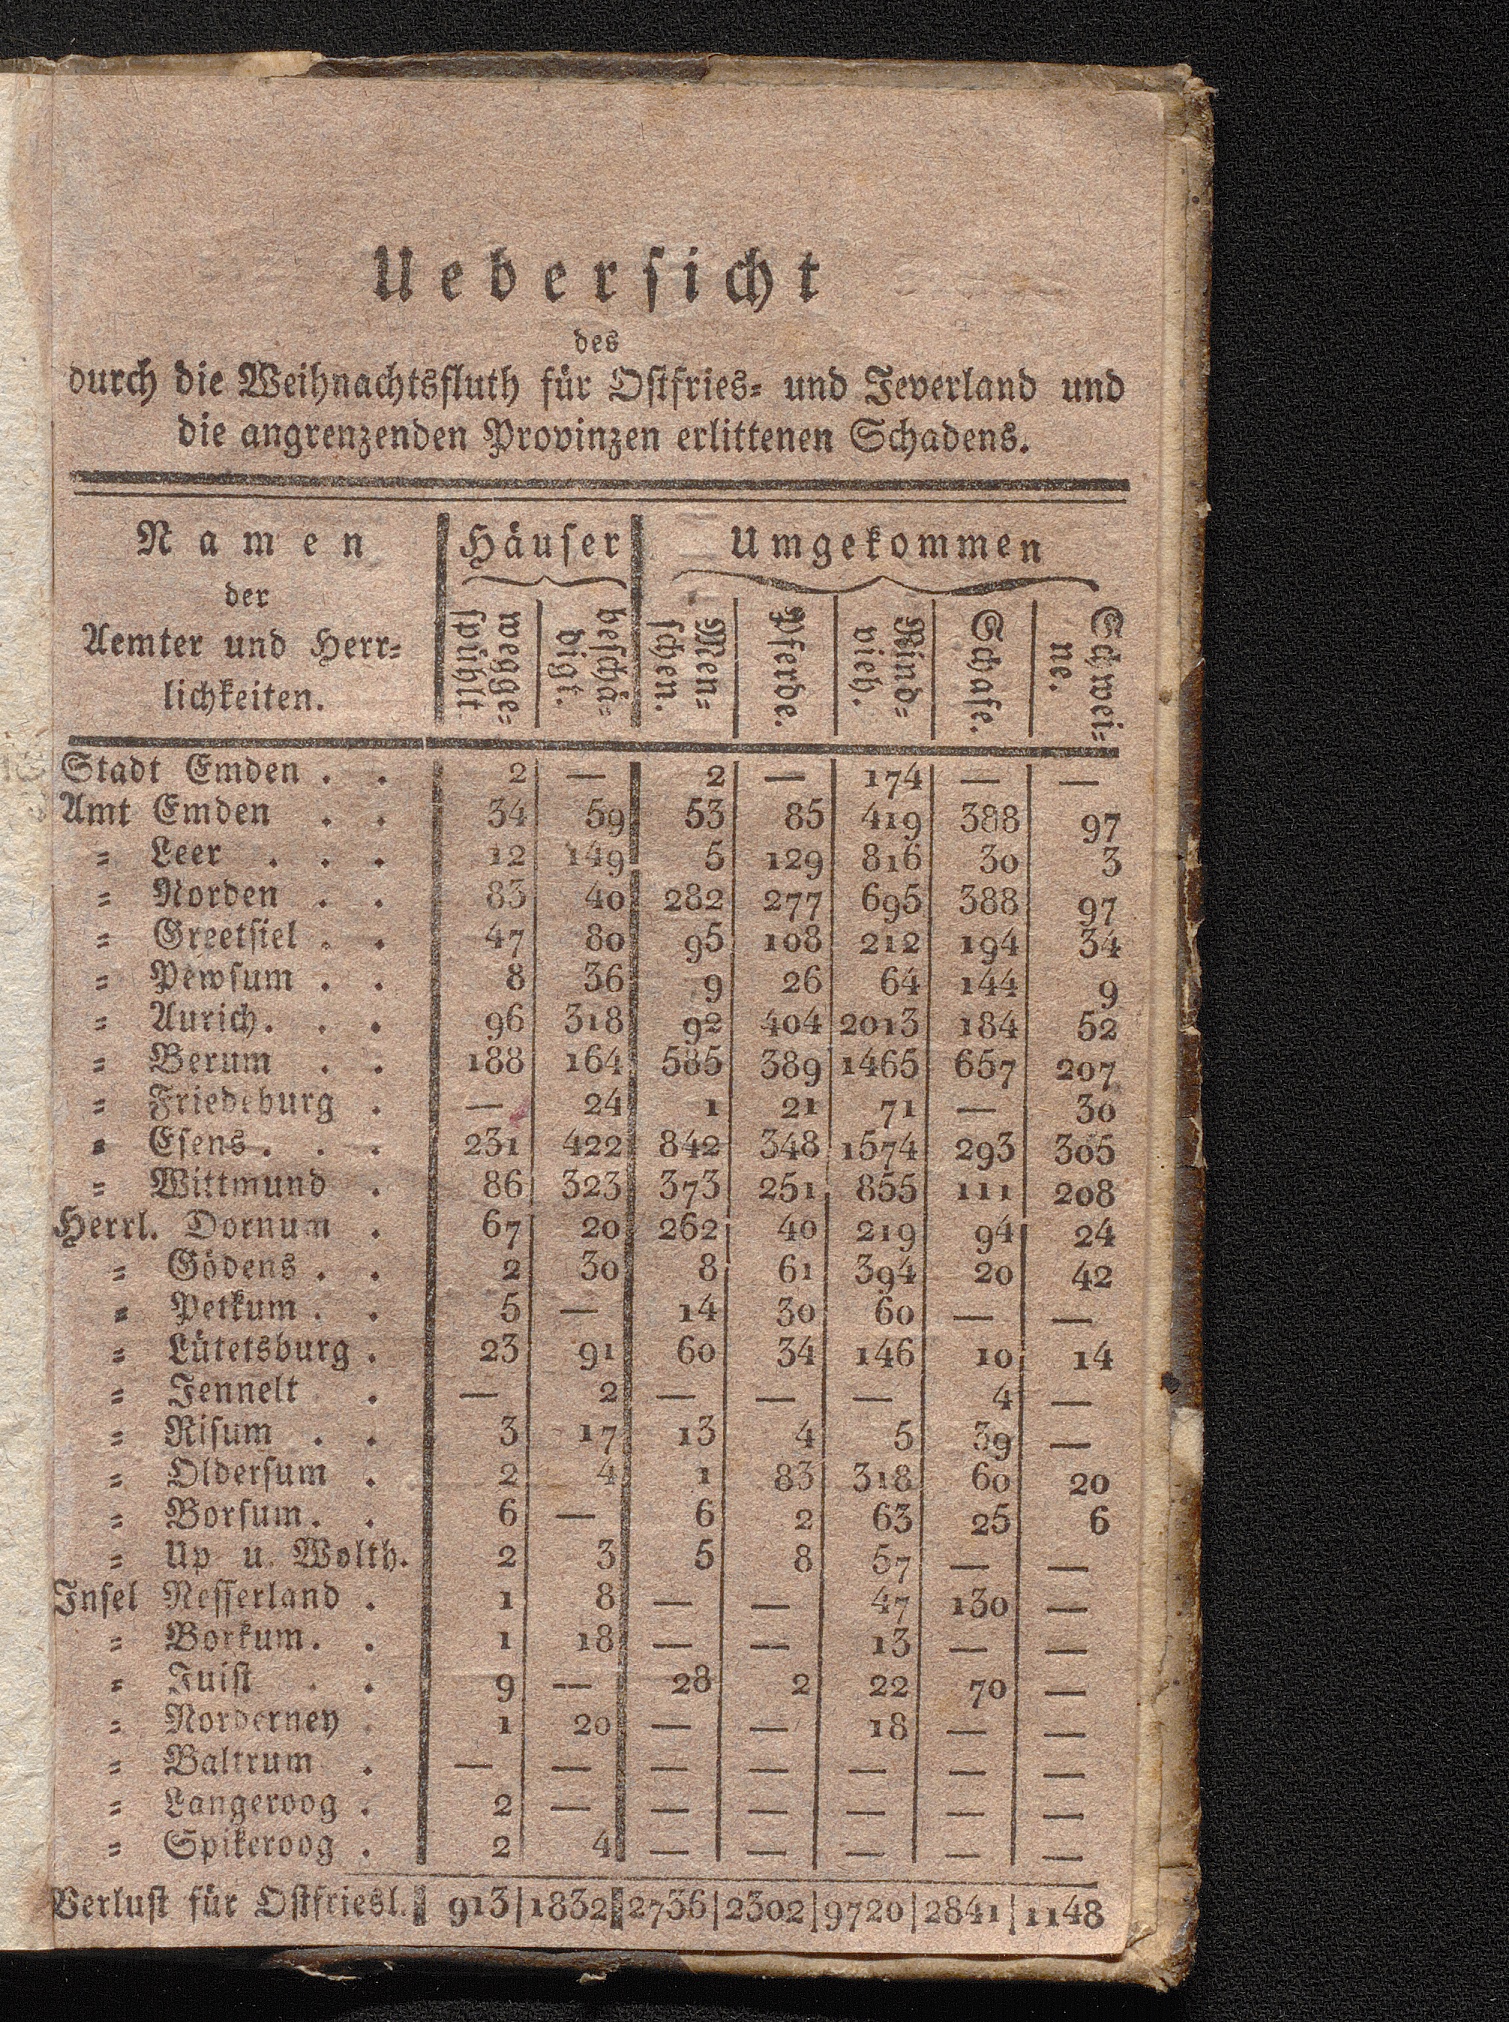 Uebersicht
des
durch die Weihnachtsfluth für Ostfries= und Jeverland und
die angrenzenden Provinzen erlittenen Schadens.
Namen
der
Aemter und Herr=
lichkeiten.
Häuser
Umgekommen
wegge=
spühlt
beschä=
digt.
Men=
schen.
Pferde.
Rind=
vieh.
Schafe.
Schwei=
ne.
Stadt Emden . . 2 — 2 — 174 — —
Amt Emden . . 34 59 53 85 419 388 97
= Leer . . . 12 149 5 129 816 30 3
= Norden . . 83 40 282 277 695 388 97
= Greetsiel . . 47 80 95 108 212 194 34
= Pewsum . . 8 36 9 26 64 144 9
= Aurich. . . 96 318 92 404 2013 184 52
= Berum . . 188 164 585 389 1465 657 207
= Friedeburg . — 24 1 21 71 — 30
= Esens . . . 231 422 842 348 1574 293 305
= Wittmund . 86 323 373 251 855 111 208
Herrl. Dornum . 67 20 262 40 219 94 24
= Gödens . . 2 30 8 61 394 20 42
= Petkum . . 5 — 14 30 60 — —
= Lütetsburg . 23 91 60 34 146 10 14
= Jennelt . — 2 — — — 4 —
= Risum . . 3 17 13 4 5 39 —
= Oldersum . 2 4 1 83 318 60 20
= Borsum. . 6 — 6 2 63 25 6
= Up u. Wolth. 2 3 5 8 57 — —
Insel Nesserland . 1 8 — — 47 130 —
= Borkum. . 1 18 — — 13 — —
= Juist . . 9 — 28 2 22 70 —
= Norderney . 1 20 — — 18 — —
= Baltrum . — — — — — — —
= Langeroog . 2 — — — — — —
= Spikeroog . 2 4 — — — — —
Verlust für Ostfriesl. 913 1832 2736 2302 9720 2841 1148